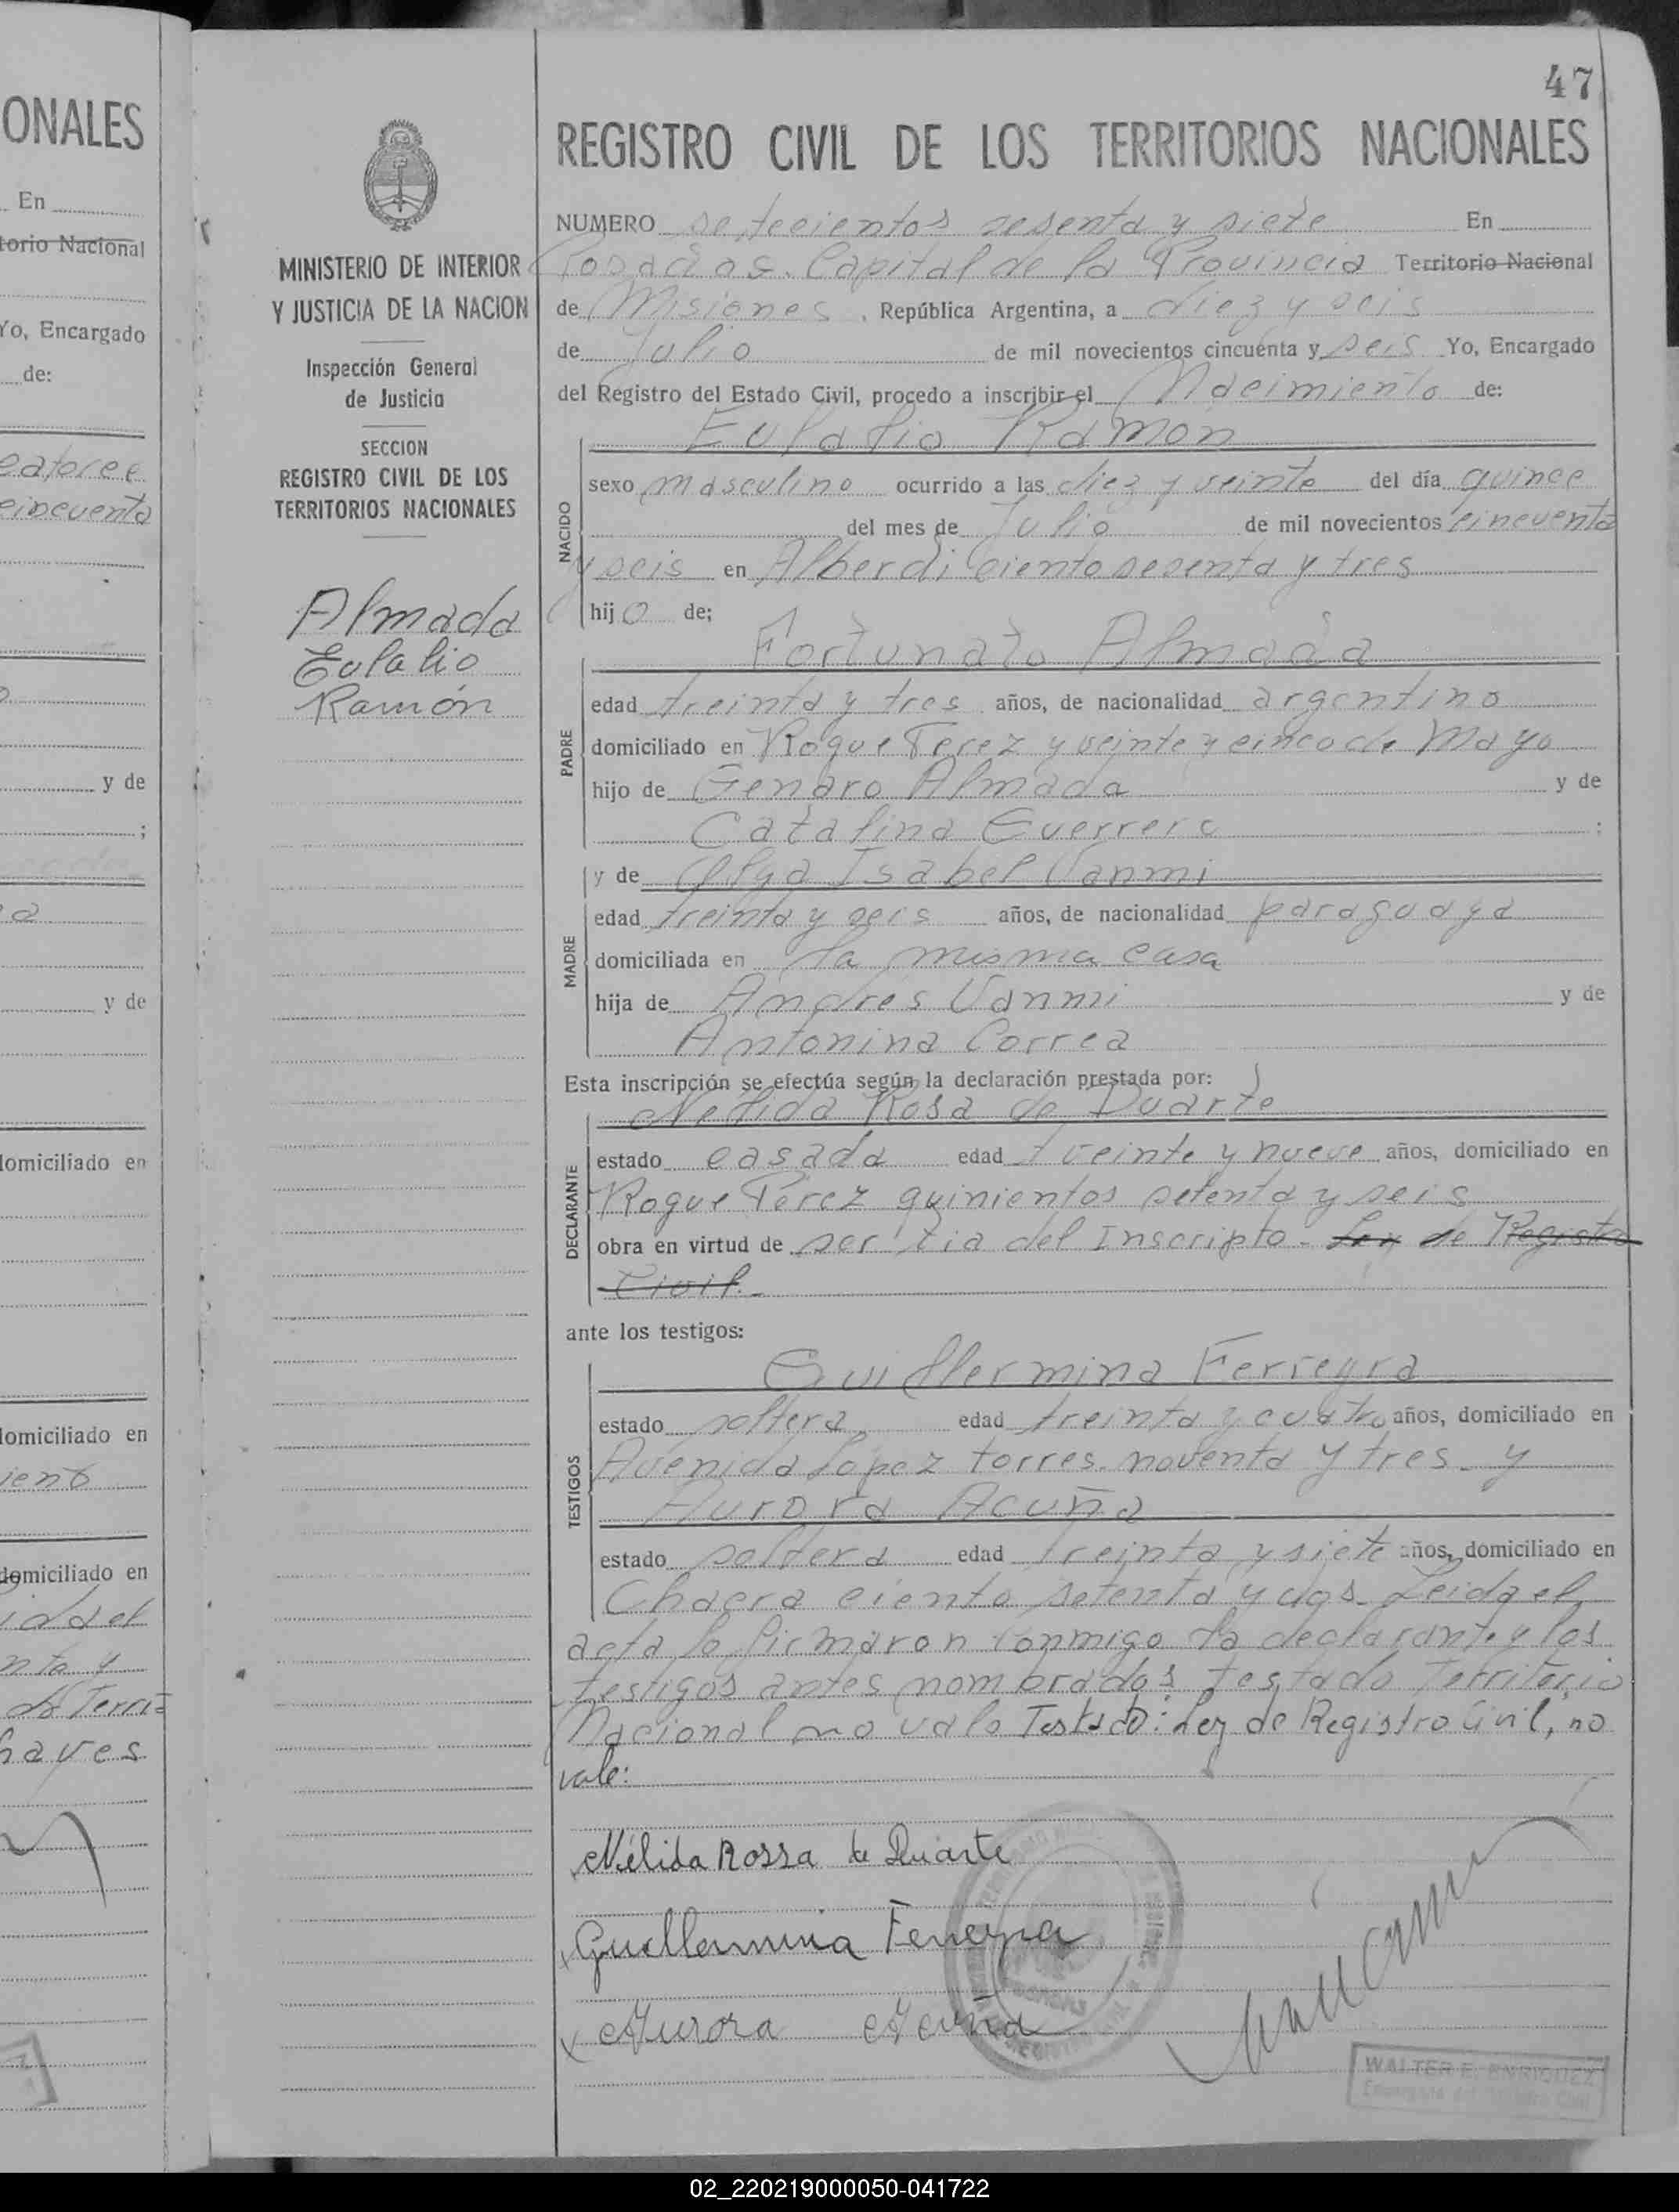 ONALES
En
torio Nacional
Yo, Encargado
de:
catorce
cincuenta
y de
;
a
y de
domiciliado en
domiciliado en
iento
domiciliado en
nta y
de Terri=
haves
47
MINISTERIO DE INTERIOR
Y JUSTICIA DE LA NACION
Inspección General
de Justicia
SECCION
REGISTRO CIVIL DE LOS
TERRITORIOS NACIONALES
Almada
Eulalio
Ramón
REGISTRO CIVIL DE LOS TERRITORIOS NACIONALES
NUMERO setecientos sesenta y siete En
Posadas. Capital de la Provincia Territorio Nacional
de Misiones, República Argentina, a diez y seis
de Julio de mil novecientos cincuenta y seis Yo, Encargado
del Registro del Estado Civil, procedo a inscribir el Nacimiento de:
Eulalio Ramon
NACIDO
sexo masculino ocurrido a las diez y veinte del día quince
del mes de Julio de mil novecientos cincuenta
y seis en Alberdi ciento sesenta y tres
hijo de;
Fortunato Almada
PADRE
edad treinta y tres años, de nacionalidad argentino
domiciliado en Roque Perez y veinte y cinco de Mayo
hijo de Genaro Almada y de
Catalina Guerrero :
y de Olga Isabel Vanmi
MADRE
edad treinta y seis años, de nacionalidad paraguaya
domiciliada en la misma casa
hija de Andres Vanmi y de
Antonina Correa
Esta inscripción se efectúa según la declaración prestada por:
Nelida Rosa de Duarte
DECLARANTE
estado casada edad veinte y nueve años, domiciliado en
Roque Pérez quinientos setenta y seis
obra en virtud de ser tia del Inscripto - Ley de Registro
Civil.-
ante los testigos:
Guillermina Ferreyra
TESTIGOS
estado soltera edad treinta y cuatro años, domiciliado en
Avenida López torres noventa y tres - y
Aurora Acuña
estado soltera edad treinta y siete años, domiciliado en
Chacra ciento setenta y dos. Leida el
acta la firmaron conmigo la declarante y los
testigos antes nombrados testado Territorio
Nacional no vale Testado: Ley de Registro Civil, no
vale:
Nélida Rossa de Duarte
Guillermina Ferreyra
Aurora Acuña
WALTER E. ENRIQUEZ
Encargado del Registro Civil
02_220219000050-041722